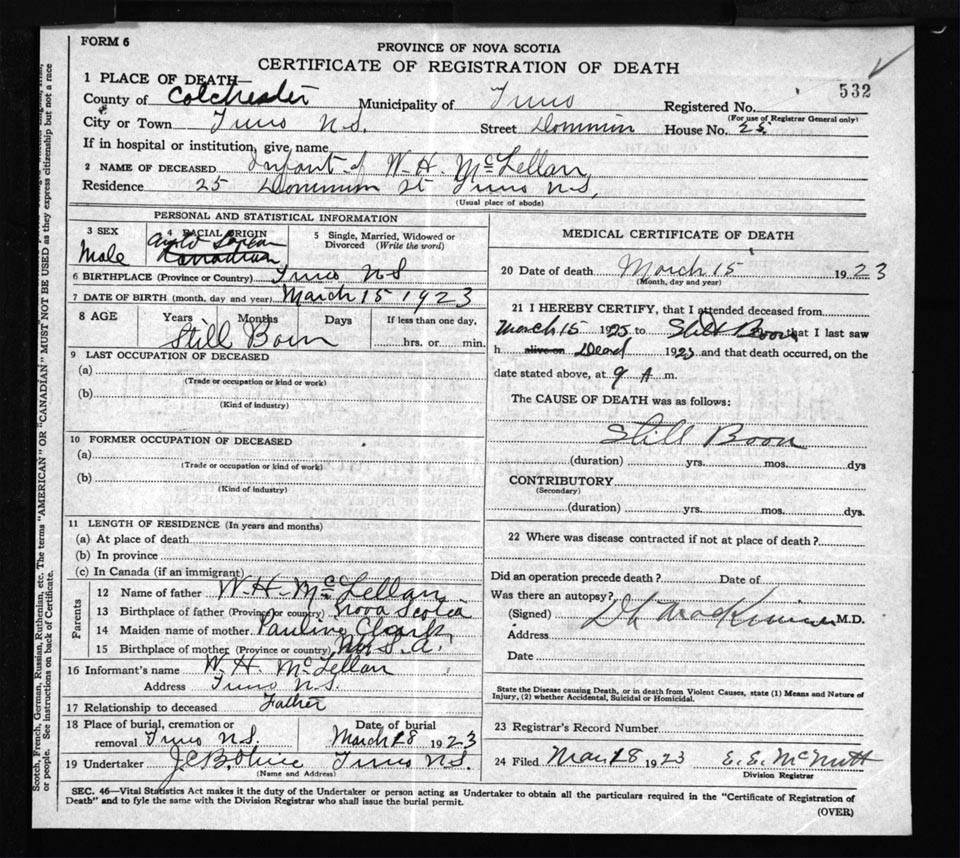 FORM 6
PROVINCE OF NOVA SCOTIA
CERTIFICATE OF REGISTRATION OF DEATH
532
1 PLACE OF DEATH—
County of Colchester Municipality of Truro Registered No.
(For use of Registrar General only)
City or Town Truro N.S. Street Dominion House No. 25
If in hospital or institution, give name
2 NAME OF DECEASED Infant of W. H. McLellan
Residence 25 Dominion St Truro N.S,
(Usual place of abode)
PERSONAL AND STATISTICAL INFORMATION
3 SEX
Male
4 RACIAL ORIGIN
Canadian
5 Single, Married, Widowed or Divorced (Write the word)
6 BIRTHPLACE (Province or Country) Truro N.S
7 DATE OF BIRTH (month, day and year) March 15 1923
8 AGE Years Months Days If less than one day,
Still Born hrs. or min.
9 LAST OCCUPATION OF DECEASED
(a)
(Trade or occupation or kind or work)
(b)
(Kind of industry)
10 FORMER OCCUPATION OF DECEASED
(a)
(Trade or occupation or kind or work)
(b)
(Kind of industry)
11 LENGTH OF RESIDENCE (In years and months)
(a) At place of death
(b) In province
(c) In Canada (if an immigrant)
Parents
12 Name of father W. H. McLellan
13 Birthplace of father (Province or country) Nova Scotia
14 Maiden name of mother Pauline Clark
15 Birthplace of mother (Province or country) S. A.
16 Informant's name W. H. McLellan
Address Truro N.S.
17 Relationship to deceased Father
18 Place of burial, cremation or Date of burial
removal Truro N.S. March 18 1923
19 Undertaker Truro N.S.
(Name and Address)
MEDICAL CERTIFICATE OF DEATH
20 Date of death March 15 1923
(Month, day and year)
21 I HEREBY CERTIFY, that I attended deceased from
March 15 1923 to Still Born that I last saw
h alive on Dead 1923 and that death occurred, on the
date stated above, at 9 A m.
The CAUSE OF DEATH was as follows:
Still Born
(duration) yrs. mos. dys
CONTRIBUTORY
(Secondary)
(duration) yrs. mos. dys.
22 Where was disease contracted if not at place of death?
Did an operation precede death? Date of
Was there an autopsy?
(Signed) M.D.
Address
Date
State the Disease causing Death, or in death from Violent Causes, state (1) Means and Nature of
Injury, (2) whether Accidental, Suicidal or Homicidal.
23 Registrar's Record Number
24 Filed Mar 18 1923 E. E. McNutt
Division Registrar
SEC. 46—Vital Statistics Act makes it the duty of the Undertaker or person acting as Undertaker to obtain all the particulars required in the "Certificate of Registration of
Death" and to fyle the same with the Division Registrar who shall issue the burial permit.
(OVER)
Scotch, French, German, Russian, Ruthenian, etc. The terms "AMERICAN" OR "CANADIAN" MUST NOT BE USED as they express citizenship but not a race
or people. See instructions on back of Certificate.